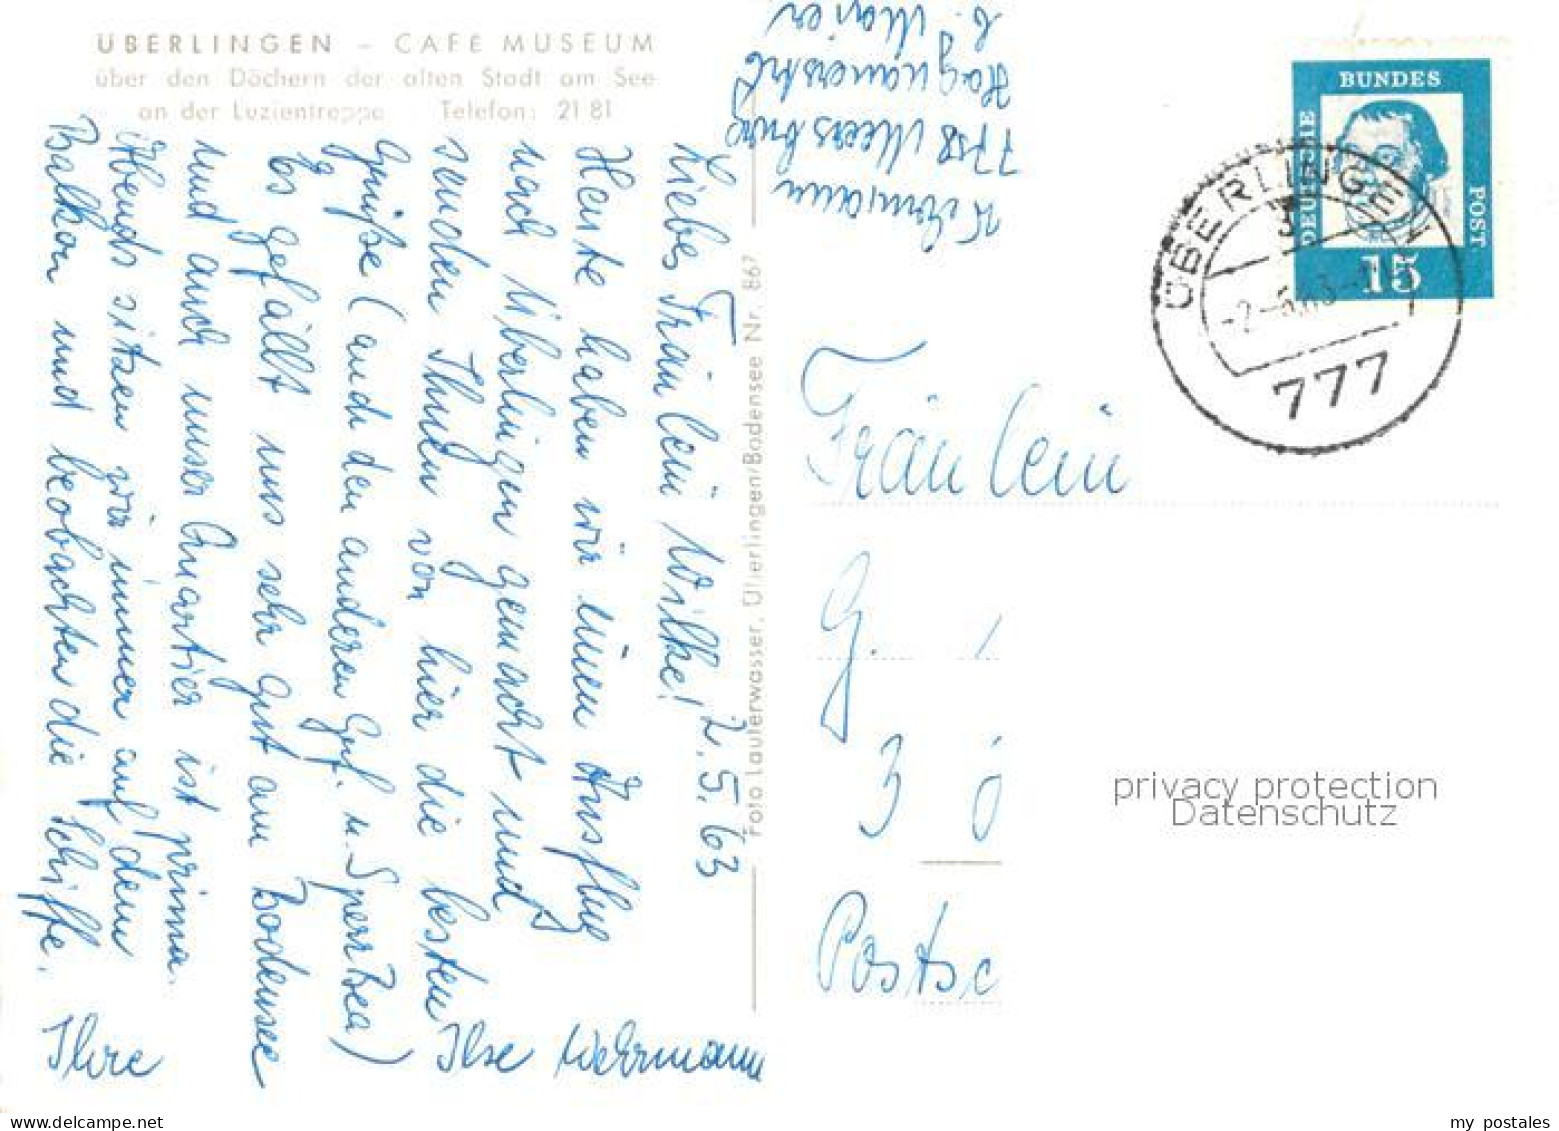 ÜBERLINGEN – CAFÉ MUSEUM
über den Dächern der alten Stadt am See
an der Luzientreppe Telefon: 21 81
Wehrmann
7758 Meersburg
b. Maier
Liebes Fräulein Wilke! 2.5.63
Heute haben wir einen Ausflug
nach Überlingen gemacht und
senden Ihnen von hier die besten
Grüße (auch den anderen Grf. u. Sperr Bea)
Es gefällt uns sehr gut am Bodensee
und auch unser Quartier ist prima.
Abends sitzen wir immer auf dem
Balkon und beobachten die Schiffe.
Ihre Ilse Wehrmann
Foto Lauterwasser, Überlingen/Bodensee Nr. 867
DEUTSCHE
BUNDES
POST
15
ÜBERLINGEN
777
Fräulein
G.
3
Postsc
privacy protection
Datenschutz
my postales